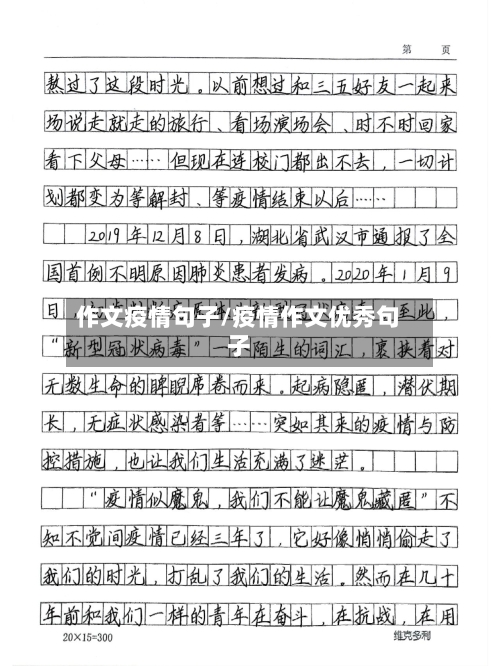 第 页
熬过了这段时光。以前想过和三五好友一起来
场说走就走的旅行、看场演场会、时不时回家
看下父母……但现在连校门都出不去，一切计
划都变为等解封、等疫情结束以后……
2019年12月8日，湖北省武汉市通报了全
国首例不明原因肺炎患者发病。2020年1月9
日，
至此，
作文疫情句子/疫情作文优秀句
子
“新型冠状病毒”一个陌生的词汇，裹挟着对
无数生命的睥睨席卷而来。起病隐匿，潜伏期
长，无症状感染者等……突如其来的疫情与防
控措施，也让我们生活充满了迷茫。
“疫情似魔鬼，我们不能让魔鬼藏匿”不
知不觉间疫情已经三年了，它好像悄悄偷走了
我们的时光，打乱了我们的生活。然而在几十
年前和我们一样的青年在奋斗，在抗战，在用
20×15=300 维克多利